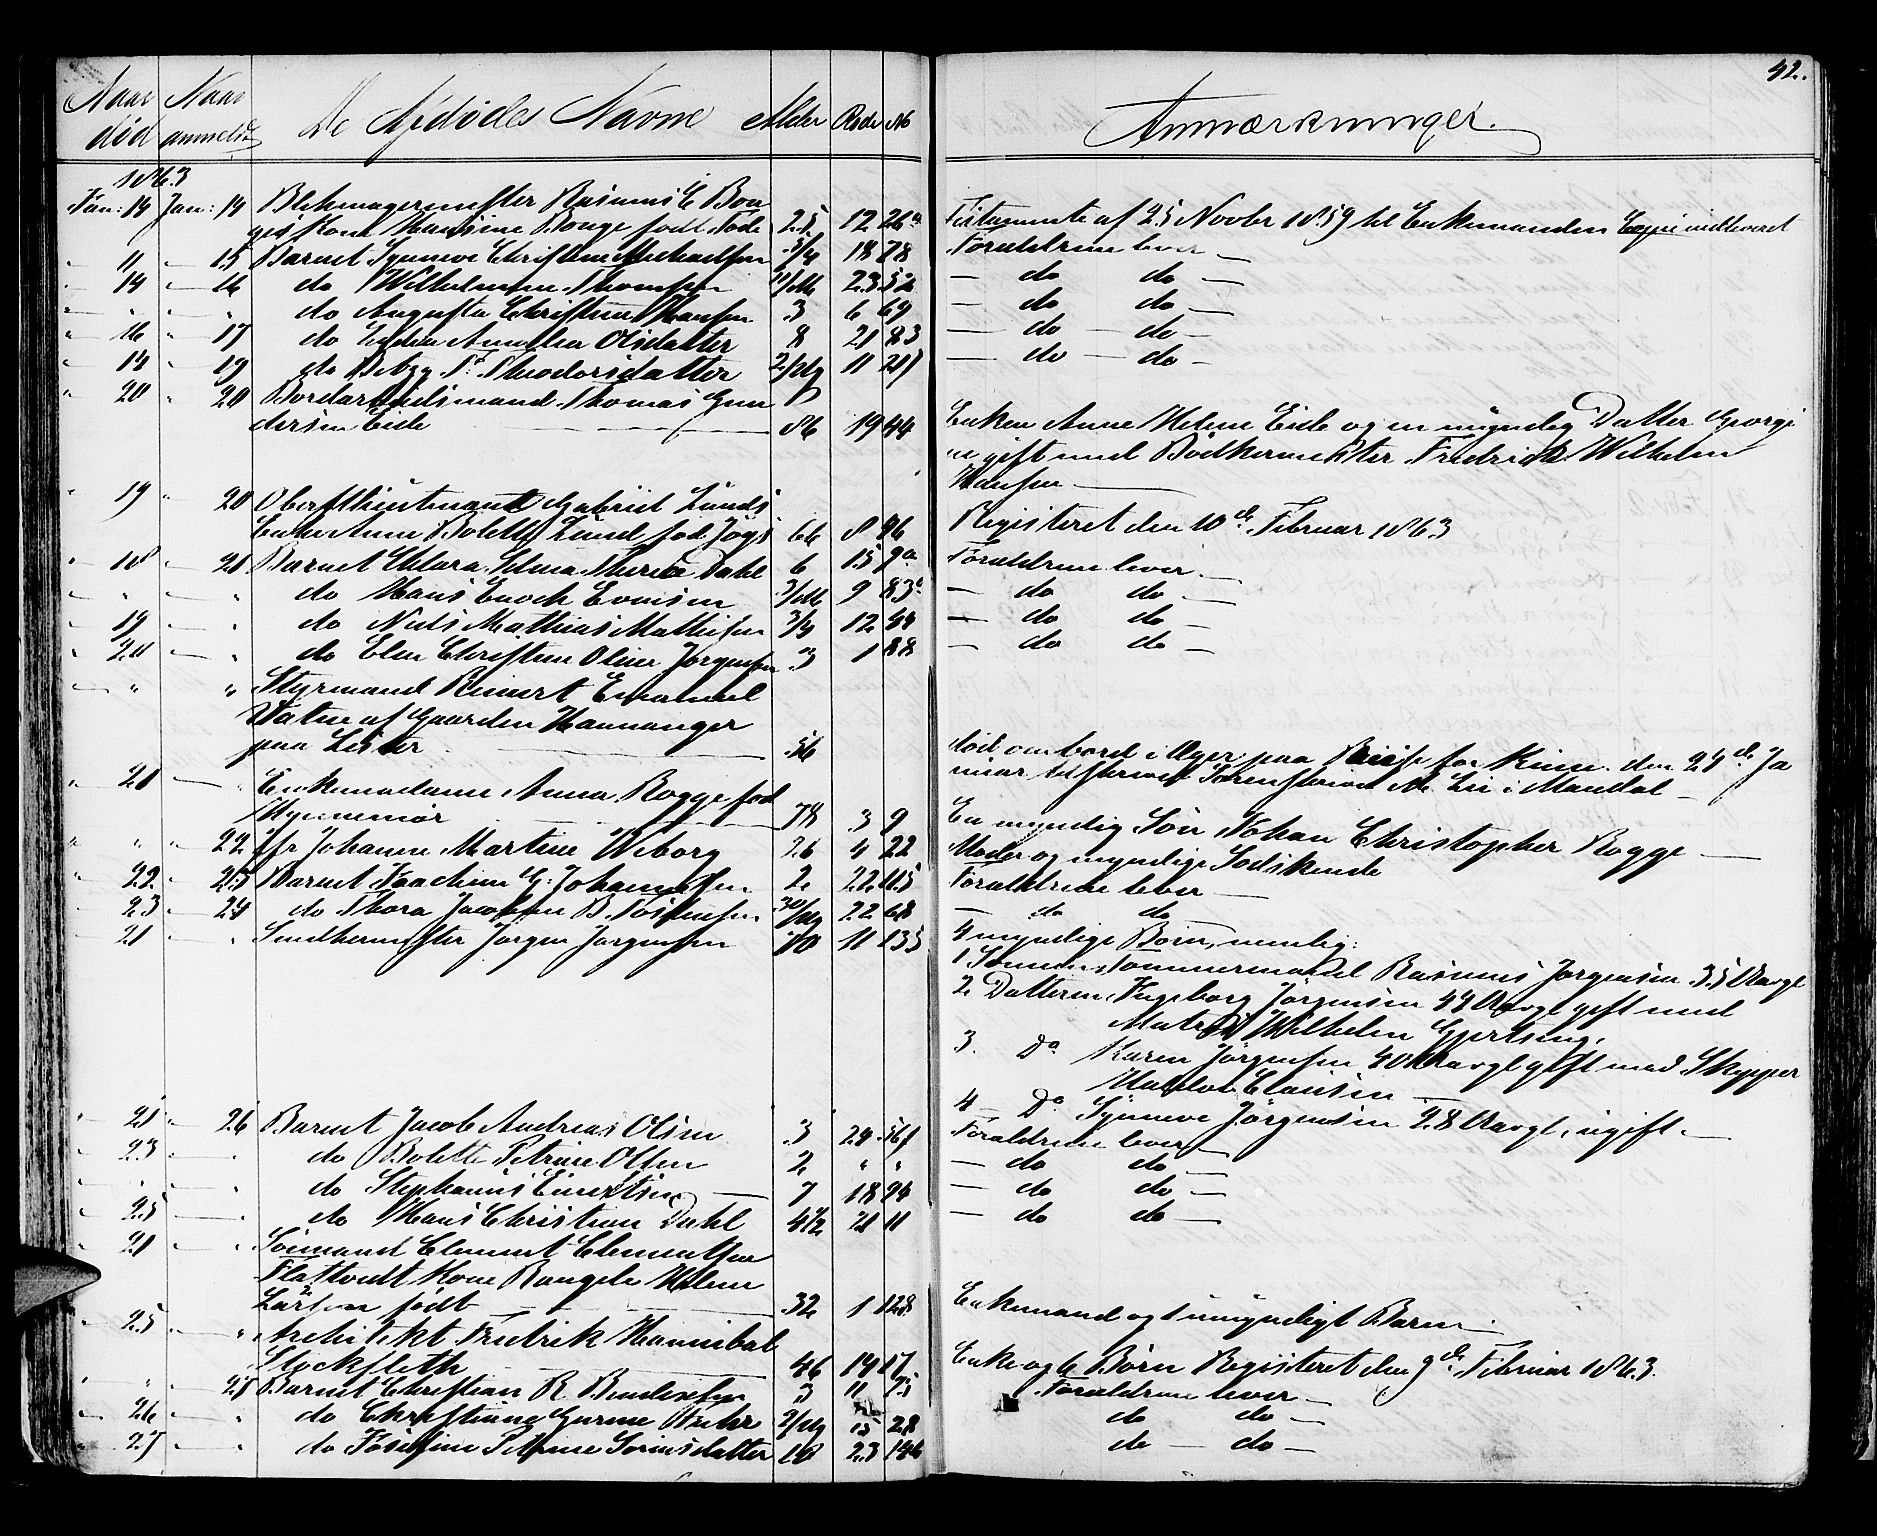 42.
Naar død Naar anmeldt De Afdødes Navne Alder Rode No Anmærkninger.
1863
Jan: 14 Jan: 14 Blikmagermester Rasmus C Bou
ges Kone Hansine Bouge født 25 12 22a Testamente af 25 Novbr 1859 til Enkemanden Copie indleveret
" 11 — 15 Barnet Synneve Christine Michaelsen 3/4 18 78 Forældrene lever —
" 14 — 16 do Wilhelmine Thomsen 11/M 23 52 — do do —
" " — " do Augusta Christine Hansen 3 6 69 — do do —
" 16 — 17 do Amalia Olsdatter 8 21 83 — do — do —
" 14 — 19 do Betzy T. Theodorsdatter 2/dg 11 — do — do —
" 20 " 20 Bordarbeidsmand Thomas Gun
dersen Eide 86 19 44 Enken Anne Helene Eide og en myndig Datter Georgi
ne gift med Bødkermester Fredrick Wilhelm
Hansen —
" 19 " 20 Oberstlieutenant Gabriel Lunds
Enke Anne Bolette Lund fød 66 8 96 Registeret den 10de Februar 1863
" 18 — 21 Barnet Clara Selma Theresa Dahl 6 15 9a Forældrene lever —
" " — " do Hans Enoch Evensen 3/M 9 83 — do do —
" 19 — " do Niels Mathias Mathisen 3/4 12 — do do —
" 20 — " do Elen Christine Oline Jørgensen 3 1 88 — do do —
" — " " Styrmand Reinert Emanuel
Vatne af Gaarden Haananger
paa Lister — 56 død ombord i Æger paa Reise for Rime den 24de Ja
nuar til Mandal —
" 21 — " Enkemadame Anna Rogge fød
78 3 9 En myndig Søn Johan Christopher Rogge —
" " " 22 Jfr Johanne Martine Wiborg 26 4 22 Moder og myndige Sødskende
" 22 — 23 Barnet Joachim G. Johannesen 2 22 115 Forældrene lever —
" 23 — 24 do Thora Jacobine B. 30/dg 22 68 — do do —
" 21 — " Smedhermester Jørgen Jørgensen 70 11 135 4 myndige Børn, nemlig:
1 Sønnen Tømmermand Rasmus Jørgensen 35 Aargl
2 Datteren Ingeborg Jørgensen 44 Aargl gift med
Matros Wilhelm Gjertsen,
3. Do Karen Jørgensen 40 Aargl gift med Skipper
Clausen —
4 — Do Synneve Jørgensen 28 Aargl, ugift —
" 21 " 26 Barnet Jacob Andreas Olsen 3 24 Forældrene lever —
" 23 — " do Bolette Petrine Olsen 2 " " — do do —
" " — " do Stephanus Einertsen — 7 18 94 — do do —
" 25 — " do Hans Christian Dahl 4½ 21 11 — do do —
" 21 — " Sømand Clement Clementsen
Flatvedt Kone Rangele Helene
Larsen født — 32 1 128 Enkemand og 1 umyndigt Barn —
" 25 — " Architekt Fredrik Hannibal
Stockfleth 46 14 17 Enke og 6 Børn Registeret den 9de Februar 1863.
" " — 28 Barnet Christian R. Bendixsen 3 11 75 Forældrene lever —
" 26 — " do Christiane Gurine 2/dg 15 28 do do —
" 27 — " do Josefine Petrine Sørensdatter 10 23 146 do — do —